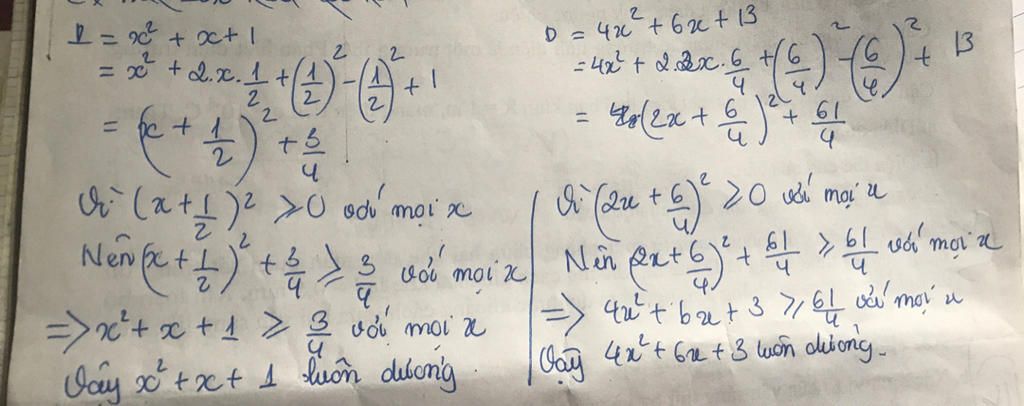 D = x² + x + 1
= x² + 2.x.1/2 + (1/2)² - (1/2)² + 1
= (x + 1/2)² + 3/4
Vì (x + 1/2)² ≥ 0 với mọi x
Nên (x + 1/2)² + 3/4 ≥ 3/4 với mọi x
=> x² + x + 1 ≥ 3/4 với mọi x
Vậy x² + x + 1 luôn dương
D = 4x² + 6x + 13
= 4x² + 2.2x.6/4 + (6/4)² - (6/4)² + 13
= (2x + 6/4)² + 61/4
Vì (2x + 6/4)² ≥ 0 với mọi x
Nên (2x + 6/4)² + 61/4 ≥ 61/4 với mọi x
=> 4x² + 6x + 3 ≥ 61/4 với mọi x
Vậy 4x² + 6x + 3 luôn dương.